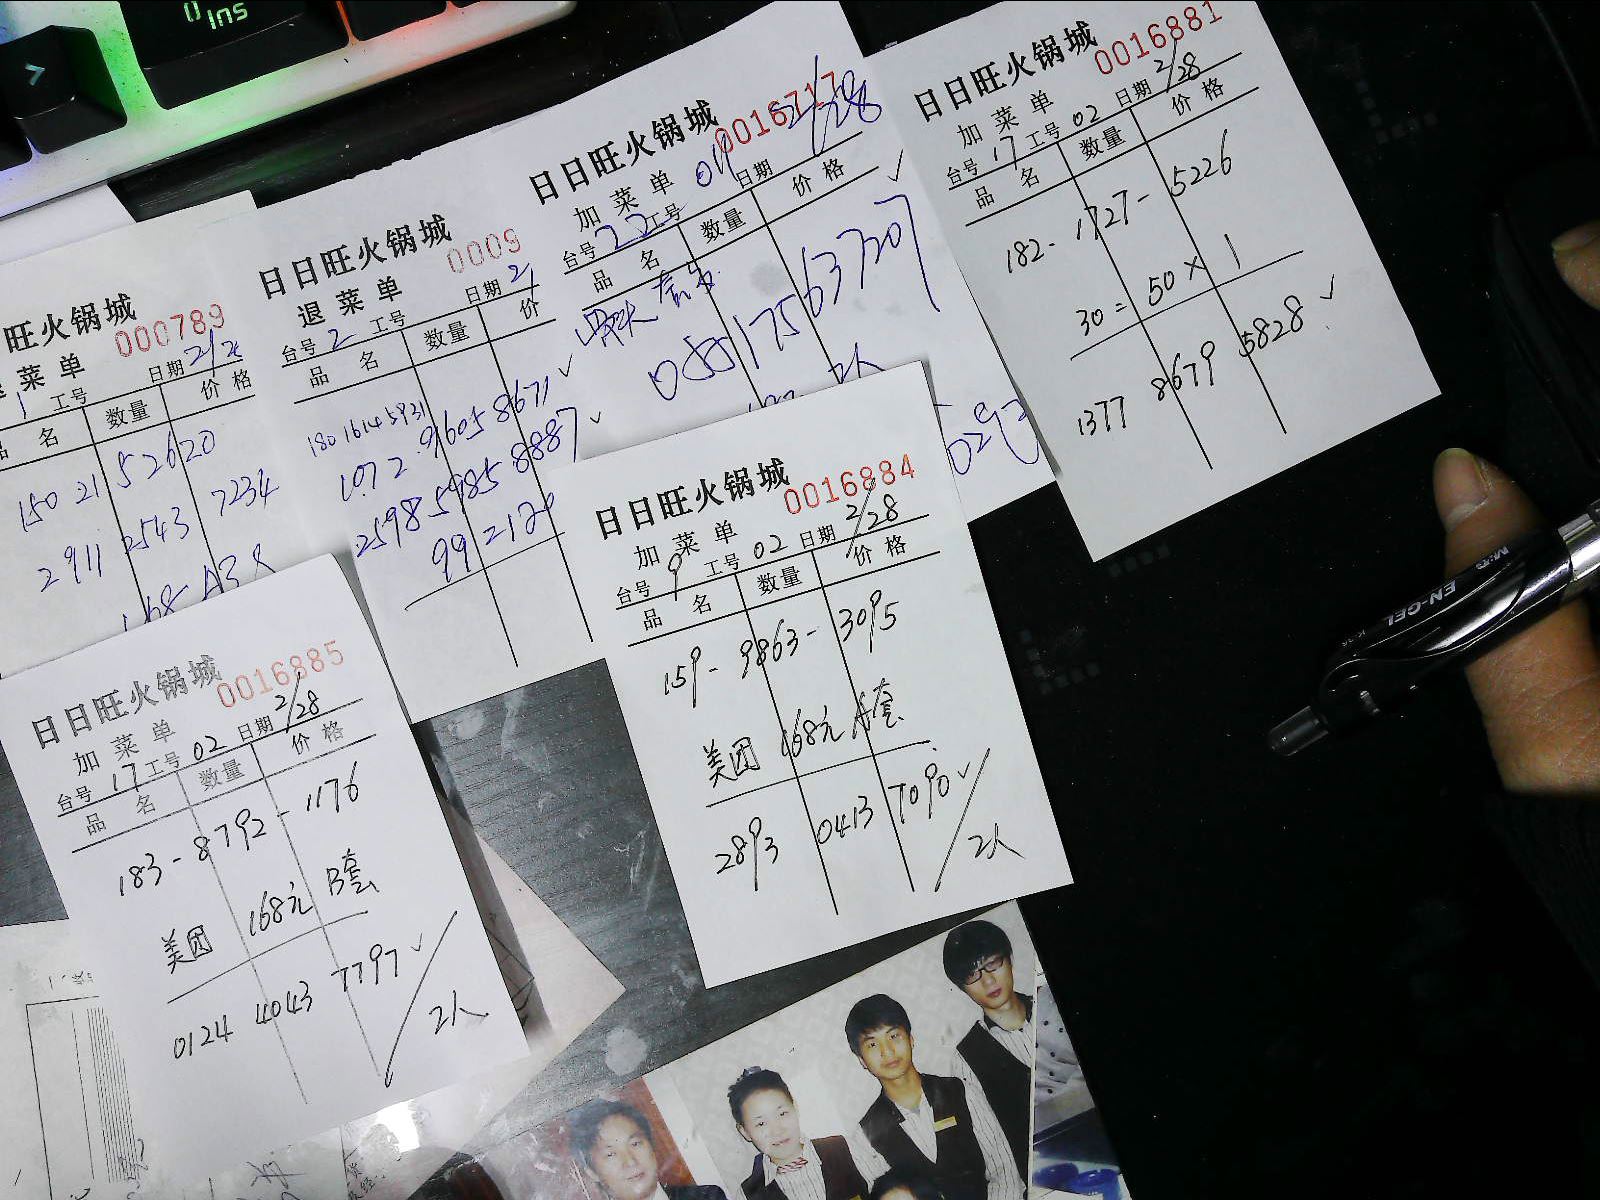 0
Ins
旺火锅城
000789
菜单
日期 2/2
1 工号
名 数量 价格
150 21 52620
2911 2543 7234
168 A3人
日日旺火锅城
0009
退菜单
日期 2/
台号 2 工号
品名 数量 价
180 1614 5931
1072 9605 8671 ✓
2598 5985 8887 ✓
99 2120
日日旺火锅城
0016717
加菜单 04 日期 2/28
台号 22 工号
品名 数量 价格 ✓
055175637207
2人
029
日日旺火锅城
0016881
加菜单
日期 2/28
台号 17 工号 02
品名 数量 价格
182- 1727- 5226
30= 50 × 1
1377 8679 5828 ✓
日日旺火锅城
0016884
加菜单
日期 2/28
台号 9 工号 02
品名 数量 价格
159- 9863- 3095
美团 168元 A套
2893 0413 7090 ✓
2人
日日旺火锅城
0016885
加菜单
日期 2/28
台号 17 工号 02
品名 数量 价格
183-8792-1176
美团 168元 B套
0124 4043 7797 ✓
2人
M&G EN-GEL